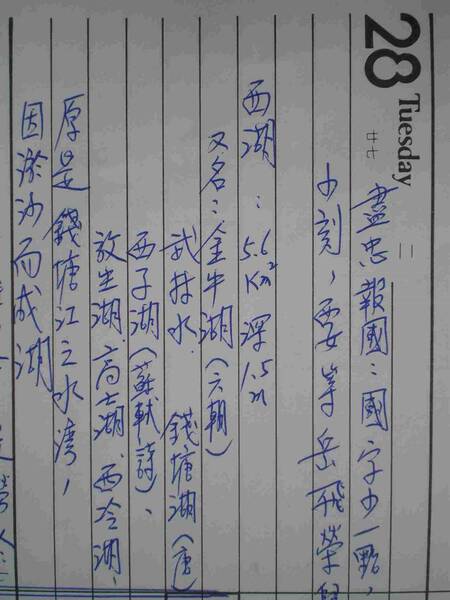 28 Tuesday
廿七
二
盡忠報國:國字少一點,
少刻,要等岳飛榮
西湖:5.6 Km² 深1.5m
又名:金牛湖(六朝)
武林水. 錢塘湖(唐
西子湖(蘇軾詩)、
放生湖.高士湖.西冷湖.
原是錢塘江之水灣,
因淤沙而成湖